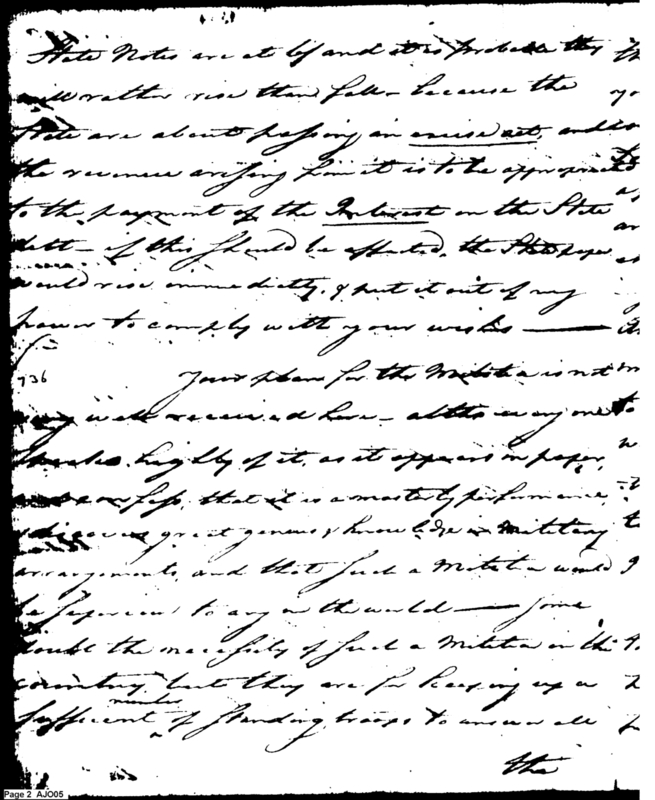 State Notes are at 6/ and it is probable they
will rather rise than fall – because the
State are about passing an excise act, and
the revenue arising from it is to be appropriated
to the payment of the Interest on the State
debt – if this should be effected, the State paper
would rise immediatly. & put it out of my
power to comply with your wishes ——
736
Your plan for the Militia is not
very well received here – altho every one
speaks highly of it, as it appears on paper,
confess, that it is a masterly performance,
discovers great genius & knowledge in Military
arrangements, and that such a Militia would
be superior to any in the world —— some
doubt the necessity of such a Militia in this
country, but they are for keeping up a
number
sufficient ‸ of standing troops to answer all
the
Page 2 AJO05